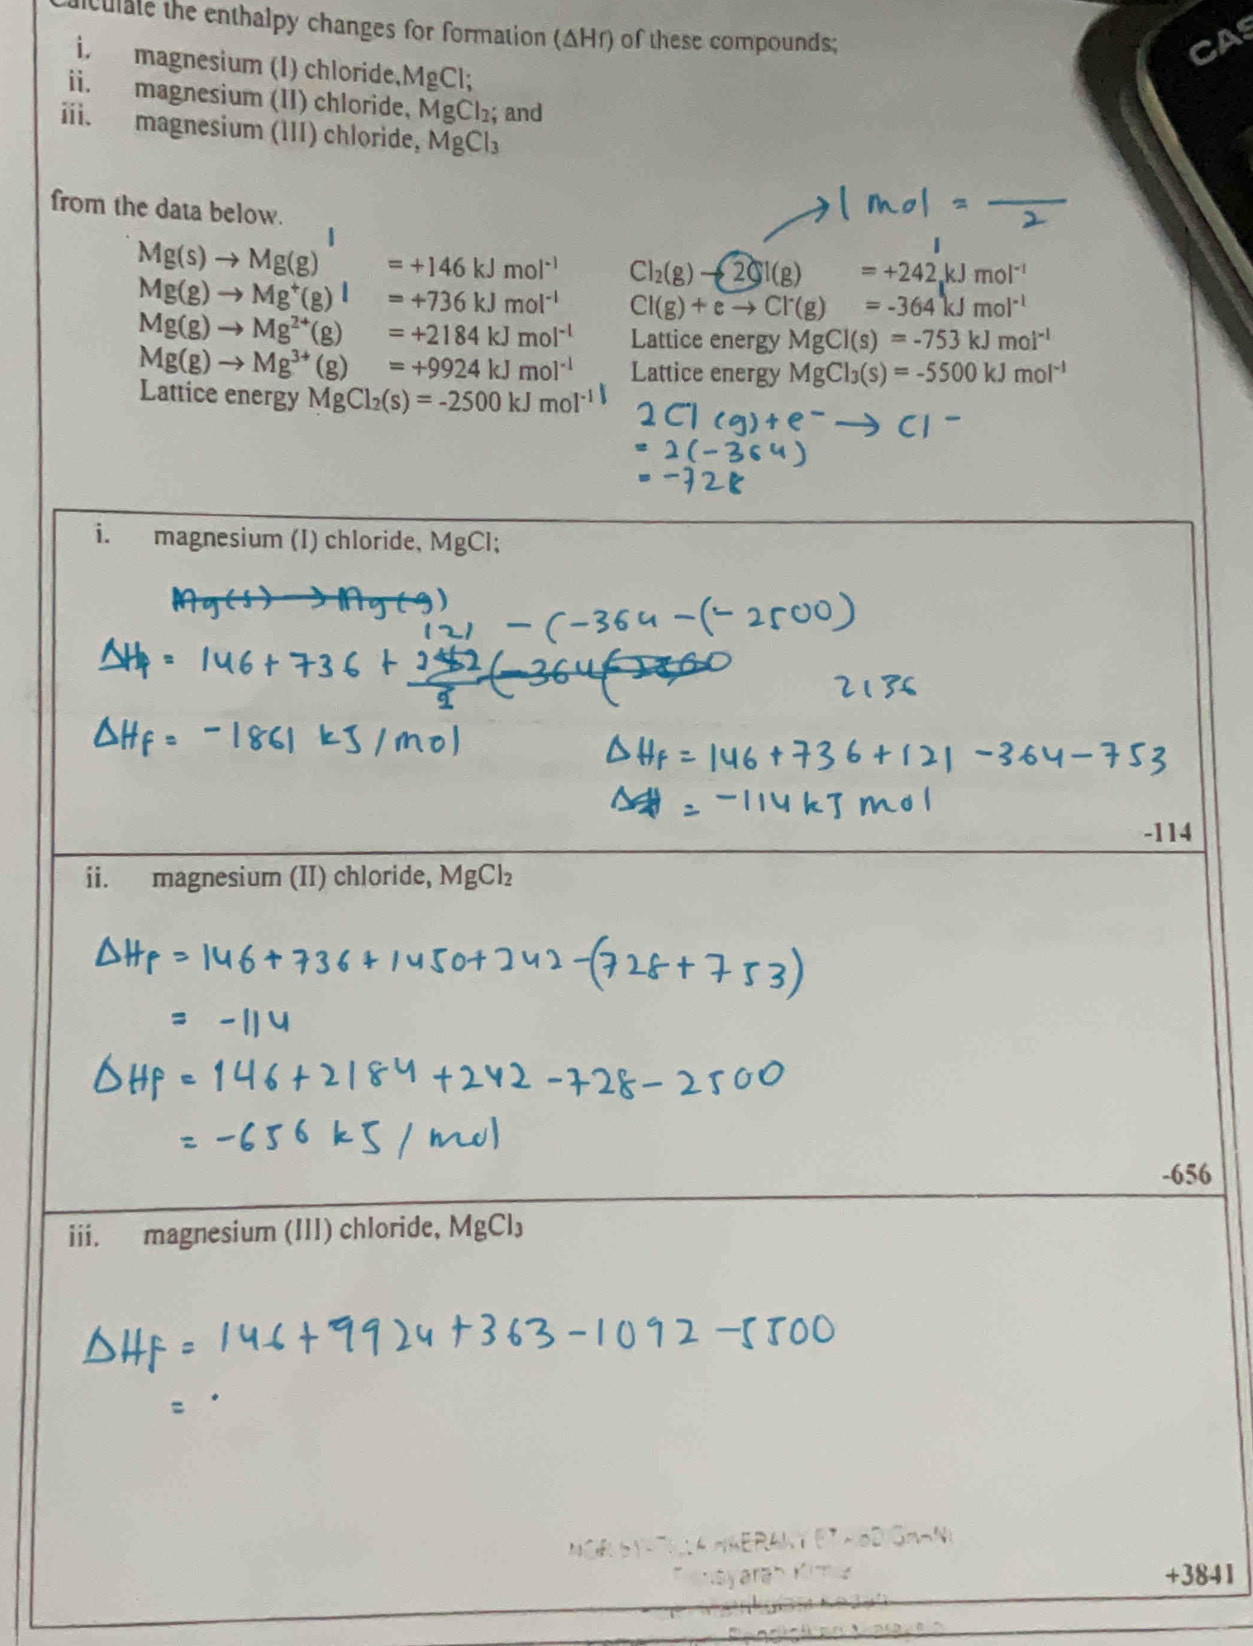 Calculate the enthalpy changes for formation (ΔHf) of these compounds;
CAS
i. magnesium (I) chloride,MgCl;
ii. magnesium (II) chloride, MgCl₂; and
iii. magnesium (III) chloride, MgCl₃
from the data below.
→ 1 mol = — 2
Mg(s) → Mg(g) = +146 kJ mol⁻¹
Cl₂(g) → 2Cl(g) = +242 kJ mol⁻¹
Mg(g) → Mg⁺(g) = +736 kJ mol⁻¹
Cl(g) + e → Cl⁻(g) = -364 kJ mol⁻¹
Mg(g) → Mg²⁺(g) = +2184 kJ mol⁻¹
Lattice energy MgCl(s) = -753 kJ mol⁻¹
Mg(g) → Mg³⁺ (g) = +9924 kJ mol⁻¹
Lattice energy MgCl₃(s) = -5500 kJ mol⁻¹
Lattice energy MgCl₂(s) = -2500 kJ mol⁻¹
2Cl (g) + e⁻ → Cl⁻
= 2(-364)
= -728
i. magnesium (I) chloride, MgCl;
Mg(s) → Mg(g)
121 - (-364 - (-2500)
ΔHf = 146 + 736 + 242/2 (-364
2136
ΔHf = -1861 kJ / mol
ΔHf = 146 + 736 + 121 - 364 - 753
ΔH = -114 kJ mol
-114
ii. magnesium (II) chloride, MgCl₂
ΔHf = 146 + 736 + 1450 + 242 - (728 + 753)
= -114
ΔHf = 146 + 2184 + 242 - 728 - 2500
= -656 kJ / mol
-656
iii. magnesium (III) chloride, MgCl₃
ΔHf = 146 + 9924 + 363 - 1092 - 5500
=
+3841